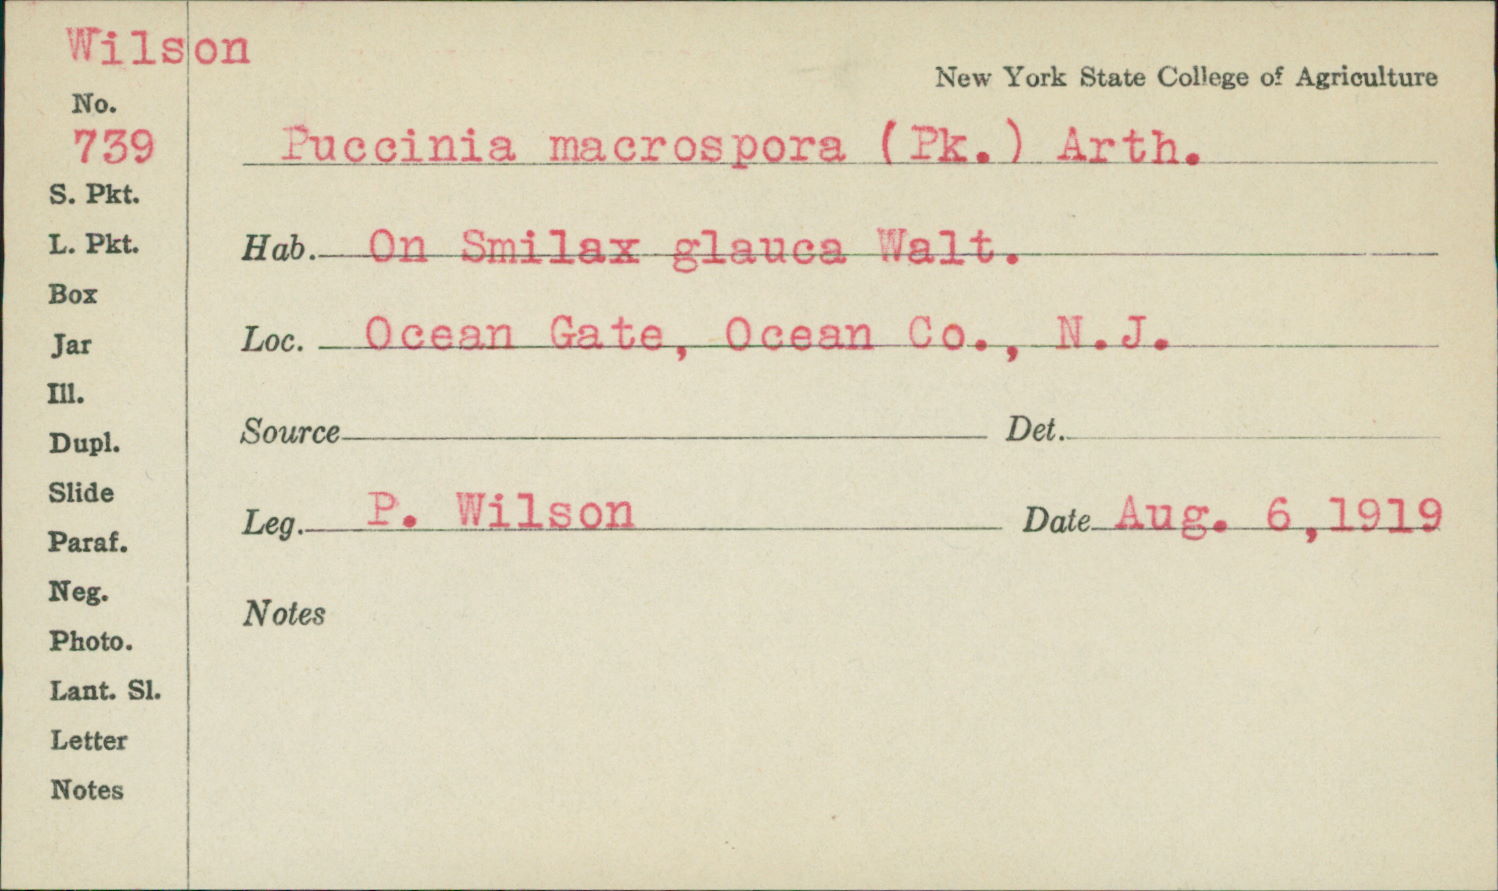 Wilson
New York State College of Agriculture
No.
739
Puccinia macrospora (Pk.) Arth.
S. Pkt.
L. Pkt.
Hab. On Smilax glauca Walt.
Box
Jar
Loc. Ocean Gate, Ocean Co., N.J.
Ill.
Dupl.
Source Det.
Slide
Leg. P. Wilson Date Aug. 6,1919
Paraf.
Neg.
Notes
Photo.
Lant. Sl.
Letter
Notes